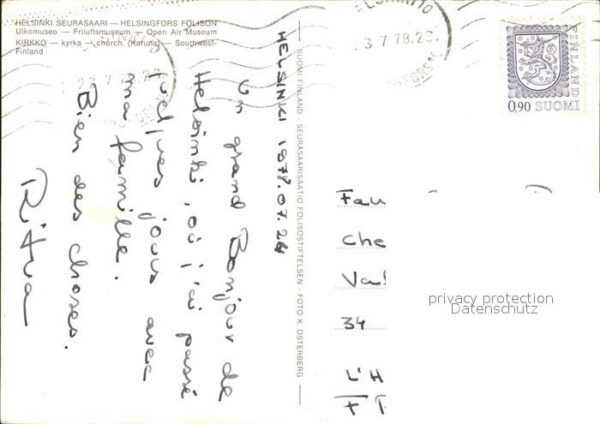 HELSINKI SEURASAARI — HELSINGFORS FÖLISÖN
Ulkomuseo — Friluftsmuseum — Open Air Museum
KIRKKO — kyrka — church (Karuna) — Southwest-
Finland
23.7.78.
FINLAND
0,90 SUOMI
SUOMI FINLAND - SEURASAARISÄÄTIÖ FÖLISÖSTIFTELSEN - FOTO K. ÖSTERBERG
HELSINKI 1978.07.24
Un grand Bonjour de
Helsinki, où j'ai passé
quelques jours avec
ma famille.
Bien des choses.
Ritva
Fau
Che
Val
34
L'H
privacy protection
Datenschutz